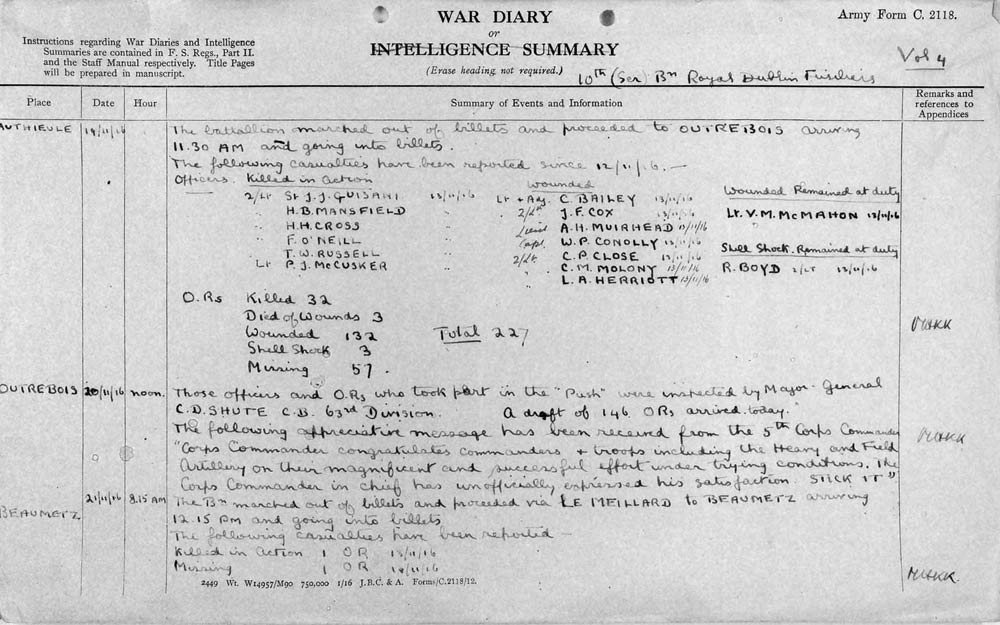 WAR DIARY
or
INTELLIGENCE SUMMARY
(Erase heading not required.)
Army Form C. 2118.
Instructions regarding War Diaries and Intelligence
Summaries are contained in F. S. Regs., Part II.
and the Staff Manual respectively. Title Pages
will be prepared in manuscript.
Vol 4
10th (Ser) Bn Royal Dublin Fusiliers
Place Date Hour Summary of Events and Information Remarks and references to Appendices
AUTHIEULE 19/11/16 The battalion marched out of billets and proceeded to OUTREBOIS arriving
11.30 AM and going into billets.
The following casualties have been reported since 12/11/16. —
Officers. Killed in action Wounded Wounded Remained at duty
2/Lt St J.J. GUISANI 13/11/16 Lt + Adj. C. BAILEY 13/11/16
" H.B. MANSFIELD " 2/Lt J.F. COX 13/11/16 Lt. V.M. McMAHON 13/11/16
" H.H. CROSS " Lieut A.H. MUIRHEAD 13/11/16
" F. O'NEILL " Capt. W.P. CONOLLY 13/11/16 Shell Shock. Remained at duty
" T.W. RUSSELL " 2/Lt. C.P. CLOSE 13/11/16
Lt P.J. McCUSKER " " C.M. MOLONY 13/11/16 R. BOYD 2/Lt 13/11/16
" L.A. HERRIOTT 13/11/16
O.Rs Killed 32
Died of Wounds 3
Wounded 132 Total 227
Shell Shock 3
Missing 57.
OUTREBOIS 20/11/16 noon. Those officers and O.Rs who took part in the "Push" were inspected by Major-General
C.D. SHUTE C.B. 63rd Division. A draft of 146 ORs arrived today.
The following appreciative message has been received from the 5th Corps Commander
"Corps Commander congratulates commanders + troops including the Heavy and Field
Artillery on their magnificent and successful effort under trying conditions. The
Corps Commander in chief has unofficially expressed his satisfaction. STICK IT"
BEAUMETZ 21/11/16 8.15 AM The Bn marched out of billets and proceeded via LE MEILLARD to BEAUMETZ arriving
12.15 PM and going into billets
The following casualties have been reported —
Killed in Action 1 OR 13/11/16
Missing 1 OR 14/11/16
2449 Wt. W14957/M90 750,000 1/16 J.B.C. & A. Forms/C.2118/12.